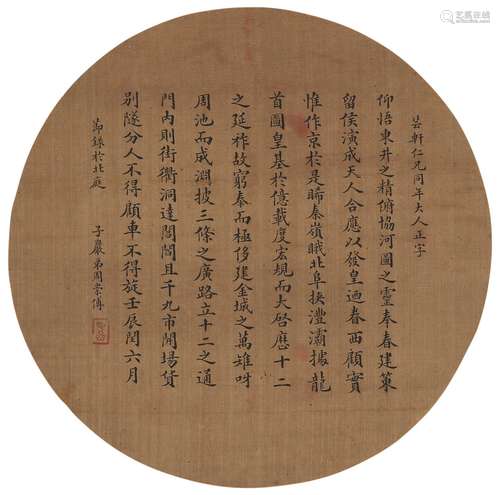 芸軒仁兄同年大人正字
仰悟東井之精俯協河圖之靈奉春建策
留侯演成天人合應以發皇迺眷西顧實
惟作京於是睎秦嶺睋北阜挾灃灞據龍
首圖皇基於億載度宏規而大啓厯十二
之延祚故窮泰而極侈建金城之萬雉呀
周池而成淵披三條之廣路立十二之通
門內則街衢洞達閭閻且千九市開場貨
別隧分人不得顧車不得旋壬辰閏六月
節錄於北庭 子巖弟周崇傅